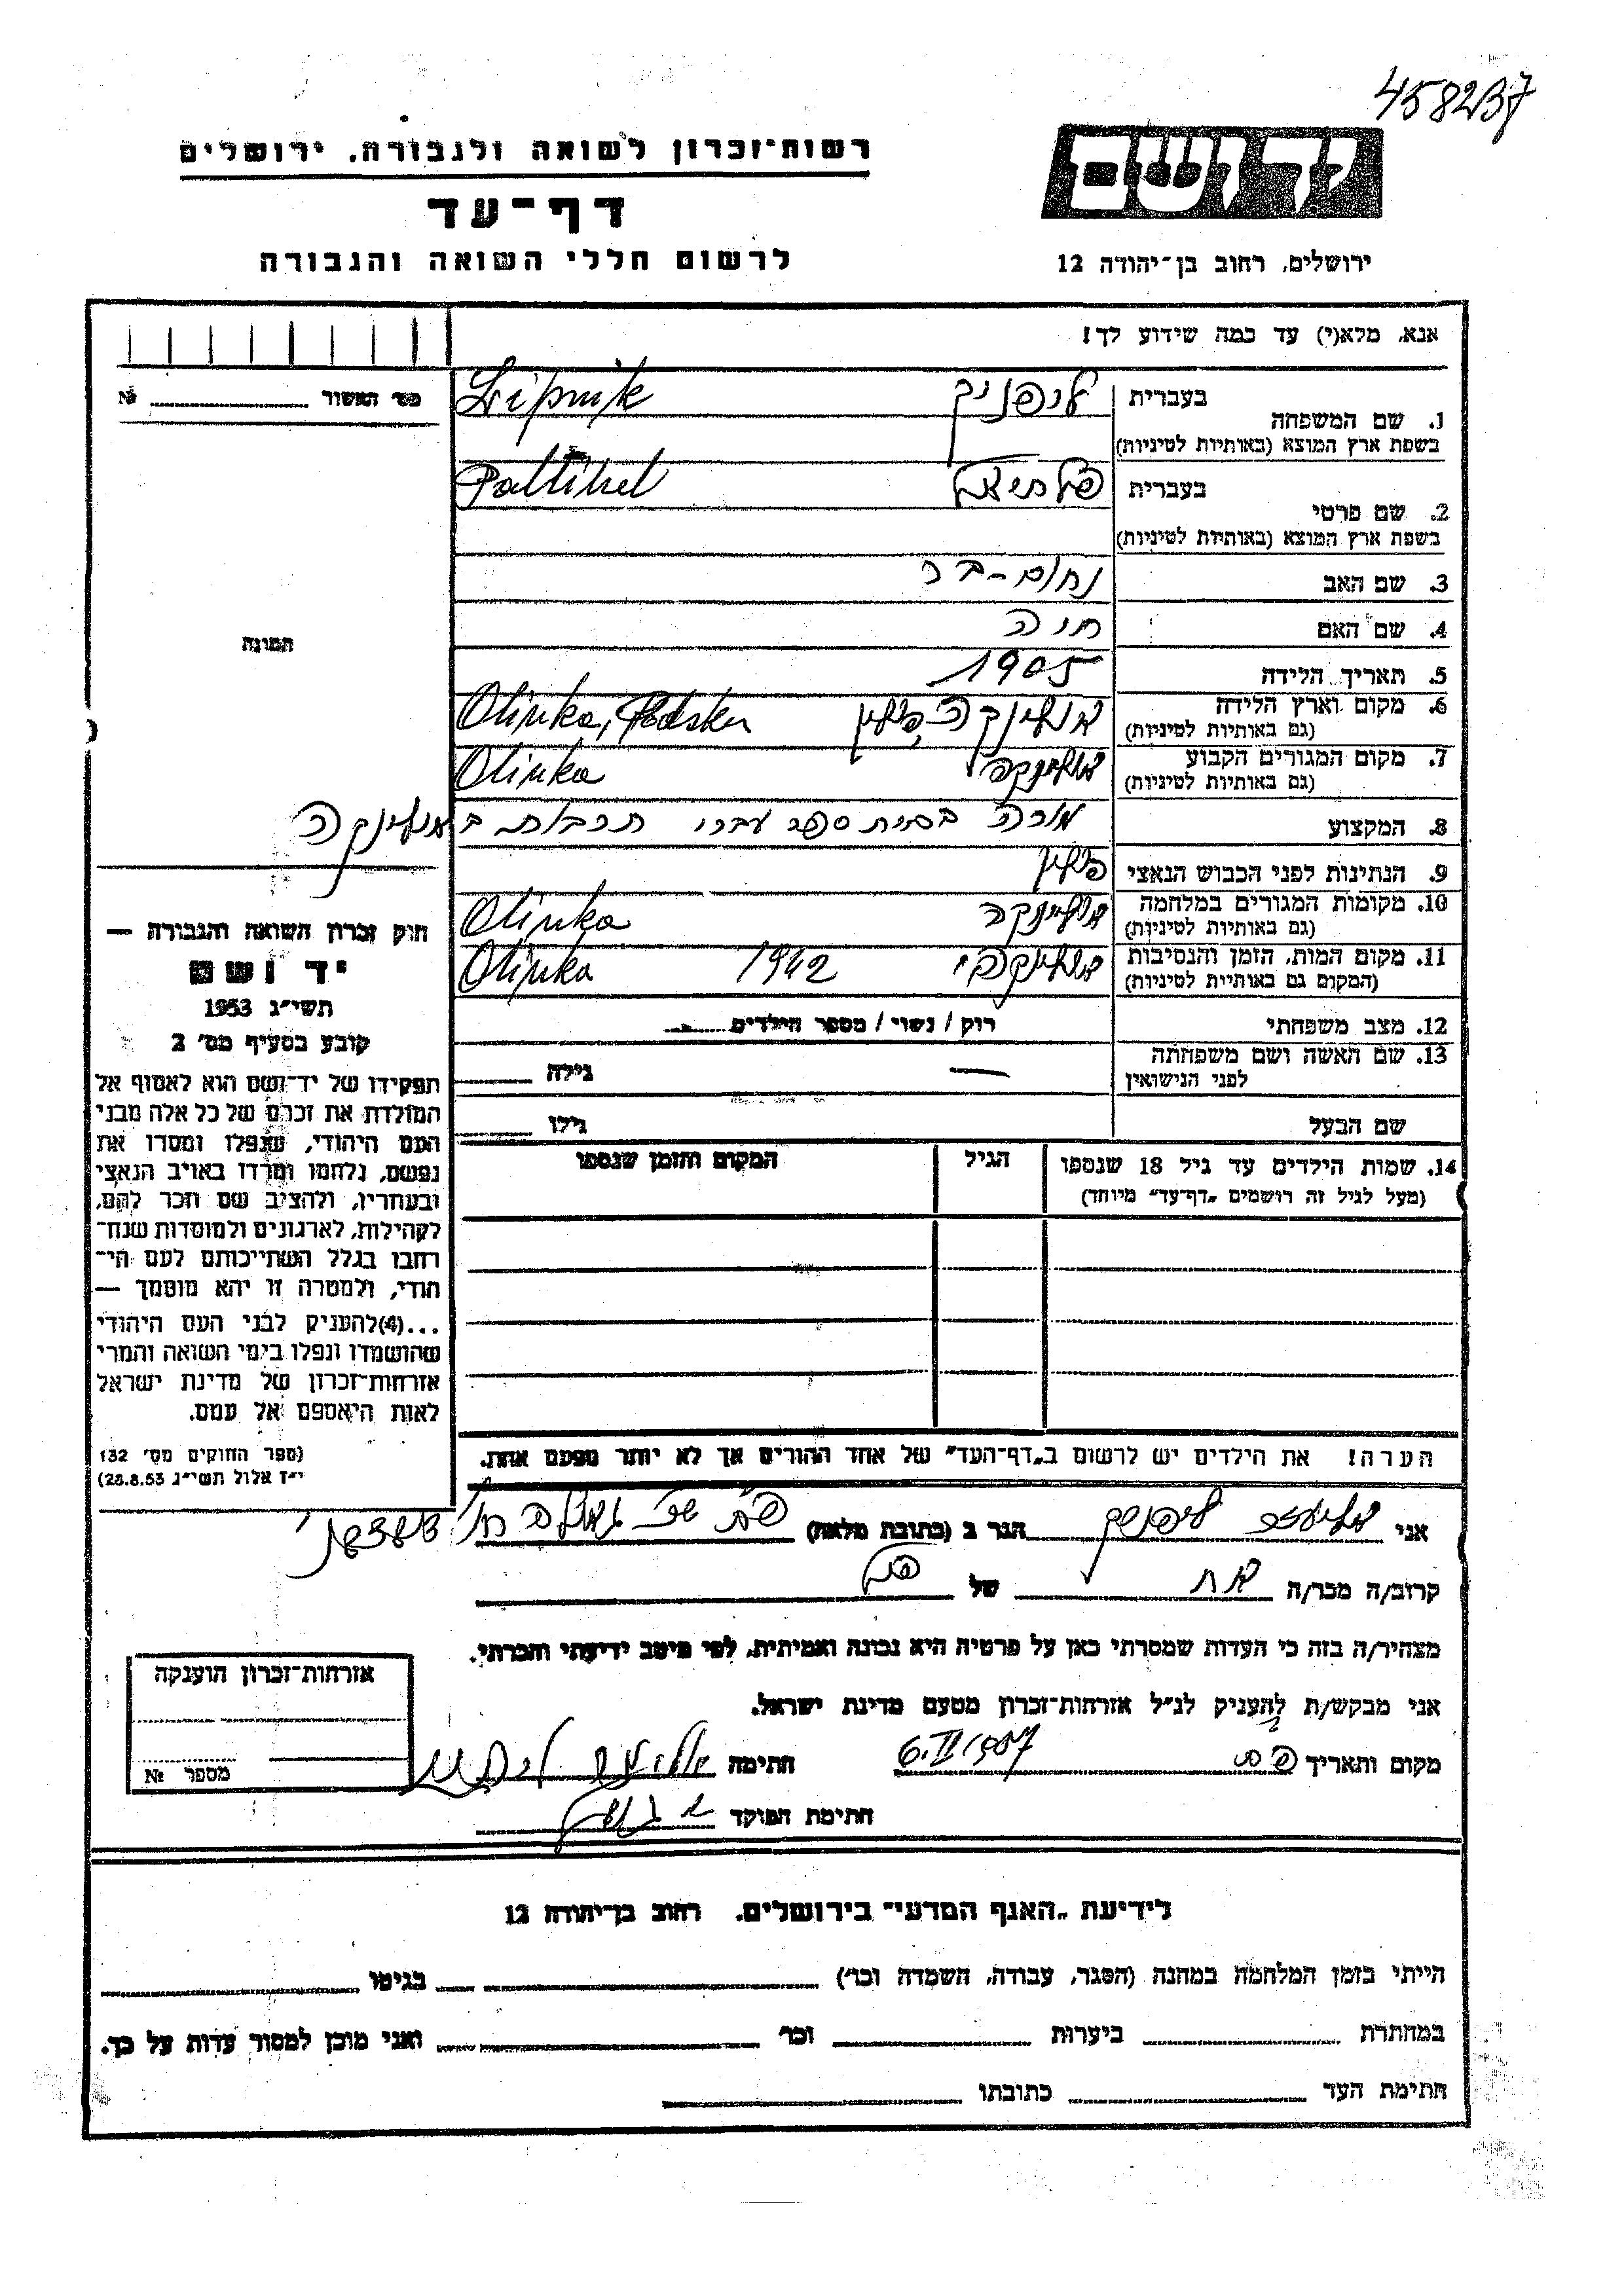 458237
רשות־זכרון לשואה ולגבורה, ירושלים
דף־עד
לרשום חללי השואה והגבורה
ידושם
ירושלים, רחוב בן־יהודה 12
אנא, מלא(י) עד כמה שידוע לך!
מס׳ האשור № 
1. שם המשפחה בעברית ליפניק Lipnik
בשפת ארץ המוצא (באותיות לטיניות)
2. שם פרטי בעברית פלטיאל Paltihel
בשפת ארץ המוצא (באותיות לטיניות)
3. שם האב נחום-בר
4. שם האם חיה
5. תאריך הלידה 1905
6. מקום וארץ הלידה פולין Olinka,
(גם באותיות לטיניות)
7. מקום המגורים הקבוע Olinka
(גם באותיות לטיניות)
8. המקצוע מורה בבית ספר עברי תרבות
9. הנתינות לפני הכבוש הנאצי פולין
10. מקומות המגורים במלחמה Olinka
(גם באותיות לטיניות)
11. מקום המות, הזמן והנסיבות 1942 Olinka
(המקום גם באותיות לטיניות)
12. מצב משפחתי רוק / נשוי / מספר הילדים
13. שם האשה ושם משפחתה לפני הנישואין — גילה
שם הבעל גילו
14. שמות הילדים עד גיל 18 שנספו הגיל המקום והזמן שנספו
(מעל לגיל זה רושמים „דף־עד״ מיוחד)
הערה! את הילדים יש לרשום ב„דף־העד״ של אחד ההורים אך לא יותר מפעם אחת.
תמונה
חוק זכרון השואה והגבורה —
יד ושם
תשי״ג 1953
קובע בסעיף מס׳ 2
תפקידו של יד־ושם הוא לאסוף אל
המולדת את זכרם של כל אלה מבני
העם היהודי, שנפלו ומסרו את
נפשם, נלחמו ומרדו באויב הנאצי
ובעוזריו, ולהציב שם וזכר להם,
לקהילות, לארגונים ולמוסדות שנח־
רבו בגלל השתייכותם לעם הי־
הודי, ולמטרה זו יהא מוסמך —
...(4)להעניק לבני העם היהודי
שהושמדו ונפלו בימי השואה והמרי
אזרחות־זכרון של מדינת ישראל
לאות היאספם אל עמם.
(ספר החוקים מס׳ 132
י״ז אלול תשי״ג 28.8.53)
אני אליעזר ליפניק הגר ב (כתובת מלאה)
קרוב/ה מכר/ה אח של
מצהיר/ה בזה כי העדות שמסרתי כאן על פרטיה היא נכונה ואמיתית, לפי מיטב ידיעתי והכרתי.
אני מבקש/ת להעניק לנ״ל אזרחות־זכרון מטעם מדינת ישראל.
מקום ותאריך 6.II 1957 חתימה
חתימת הפוקד
אזרחות־זכרון הוענקה
מספר №
לידיעת „האגף המדעי״ בירושלים, רחוב בן־יהודה 12
הייתי בזמן המלחמה במחנה (הסגר, עבודה, השמדה וכו׳) בגיטו
במחתרת ביערות וכו׳ ואני מוכן למסור עדות על כך.
חתימת העד כתובתו